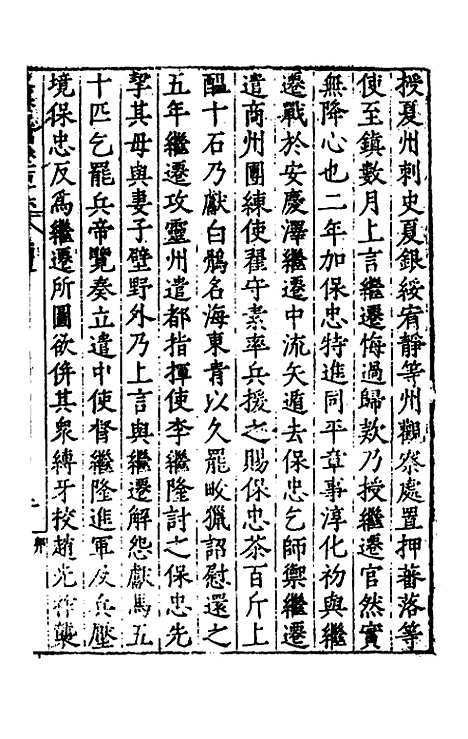 授夏州刺史夏銀綏宥靜等州觀察處置押蕃落等
使至鎮數月上言繼遷悔過歸欵乃授繼遷官然實
無降心也二年加保忠特進同平章事淳化初與繼
遷戰於安慶澤繼遷中流矢遁去保忠乞師禦繼遷
遣商州團練使翟守素率兵援之賜保忠茶百斤上
醞十石乃獻白鶻名海東青以久罷畋獵詔慰還之
五年繼遷攻靈州遣都指揮使李繼隆討之保忠先
挈其母與妻子壁野外乃上言與繼遷解怨獻馬五
十匹乞罷兵帝覽奏立遣中使督繼隆進軍及兵壓
境保忠反爲繼遷所圖欲併其衆縛牙校趙光祚襲